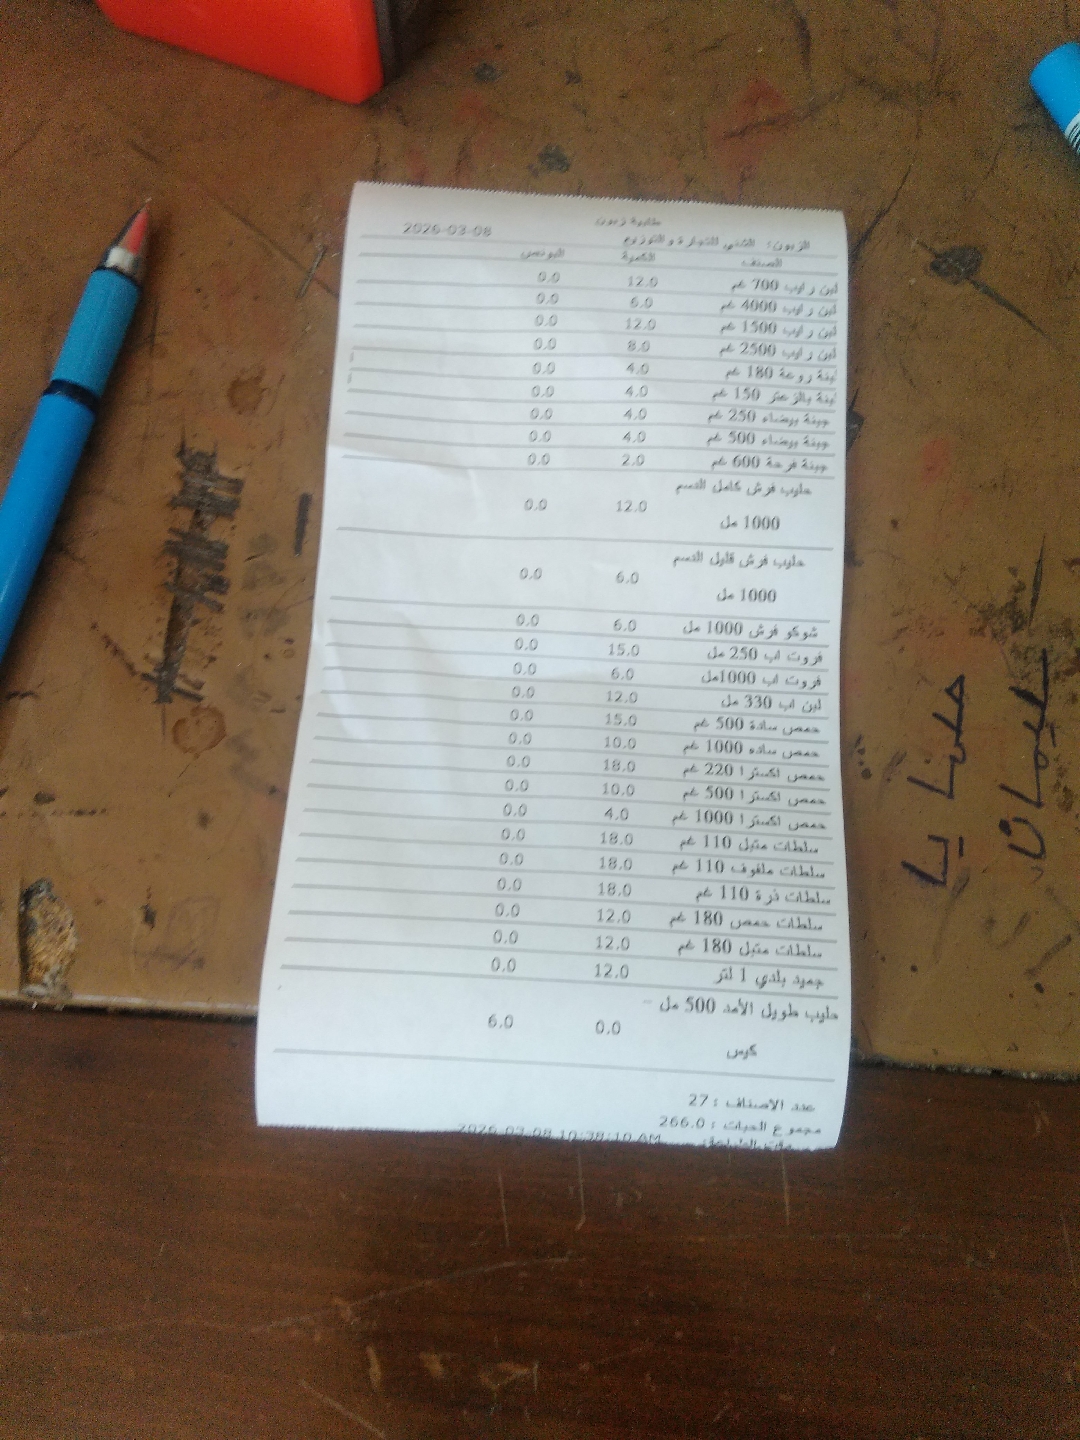 طلبية زبون
الزبون: الشني للتجارة والتوزيع 2026-03-08
الصنف الكمية البونص
لبن رايب 700 غم 12.0 0.0
لبن رايب 4000 غم 6.0 0.0
لبن رايب 1500 غم 12.0 0.0
لبن رايب 2500 غم 8.0 0.0
لبنة روعة 180 غم 4.0 0.0
لبنة بالزعتر 150 غم 4.0 0.0
جبنة بيضاء 250 غم 4.0 0.0
جبنة بيضاء 500 غم 4.0 0.0
جبنة فرحة 600 غم 2.0 0.0
حليب فرش كامل الدسم
12.0 0.0
1000 مل
حليب فرش قليل الدسم
6.0 0.0
1000 مل
شوكو فرش 1000 مل 6.0 0.0
فروت اب 250 مل 15.0 0.0
فروت اب 1000مل 6.0 0.0
لبن اب 330 مل 12.0 0.0
حمص سادة 500 غم 15.0 0.0
حمص ساده 1000 غم 10.0 0.0
حمص اكسترا 220 غم 18.0 0.0
حمص اكسترا 500 غم 10.0 0.0
حمص اكسترا 1000 غم 4.0 0.0
سلطات متبل 110 غم 18.0 0.0
سلطات ملفوف 110 غم 18.0 0.0
سلطات ذرة 110 غم 18.0 0.0
سلطات حمص 180 غم 12.0 0.0
سلطات متبل 180 غم 12.0 0.0
جميد بلدي 1 لتر 12.0 0.0
حليب طويل الأمد 500 مل -
0.0 6.0
كيس
عدد الاصناف : 27
مجموع الحبات : 266.0
وقت الطباعة: 2026-03-08 10:38:10 AM